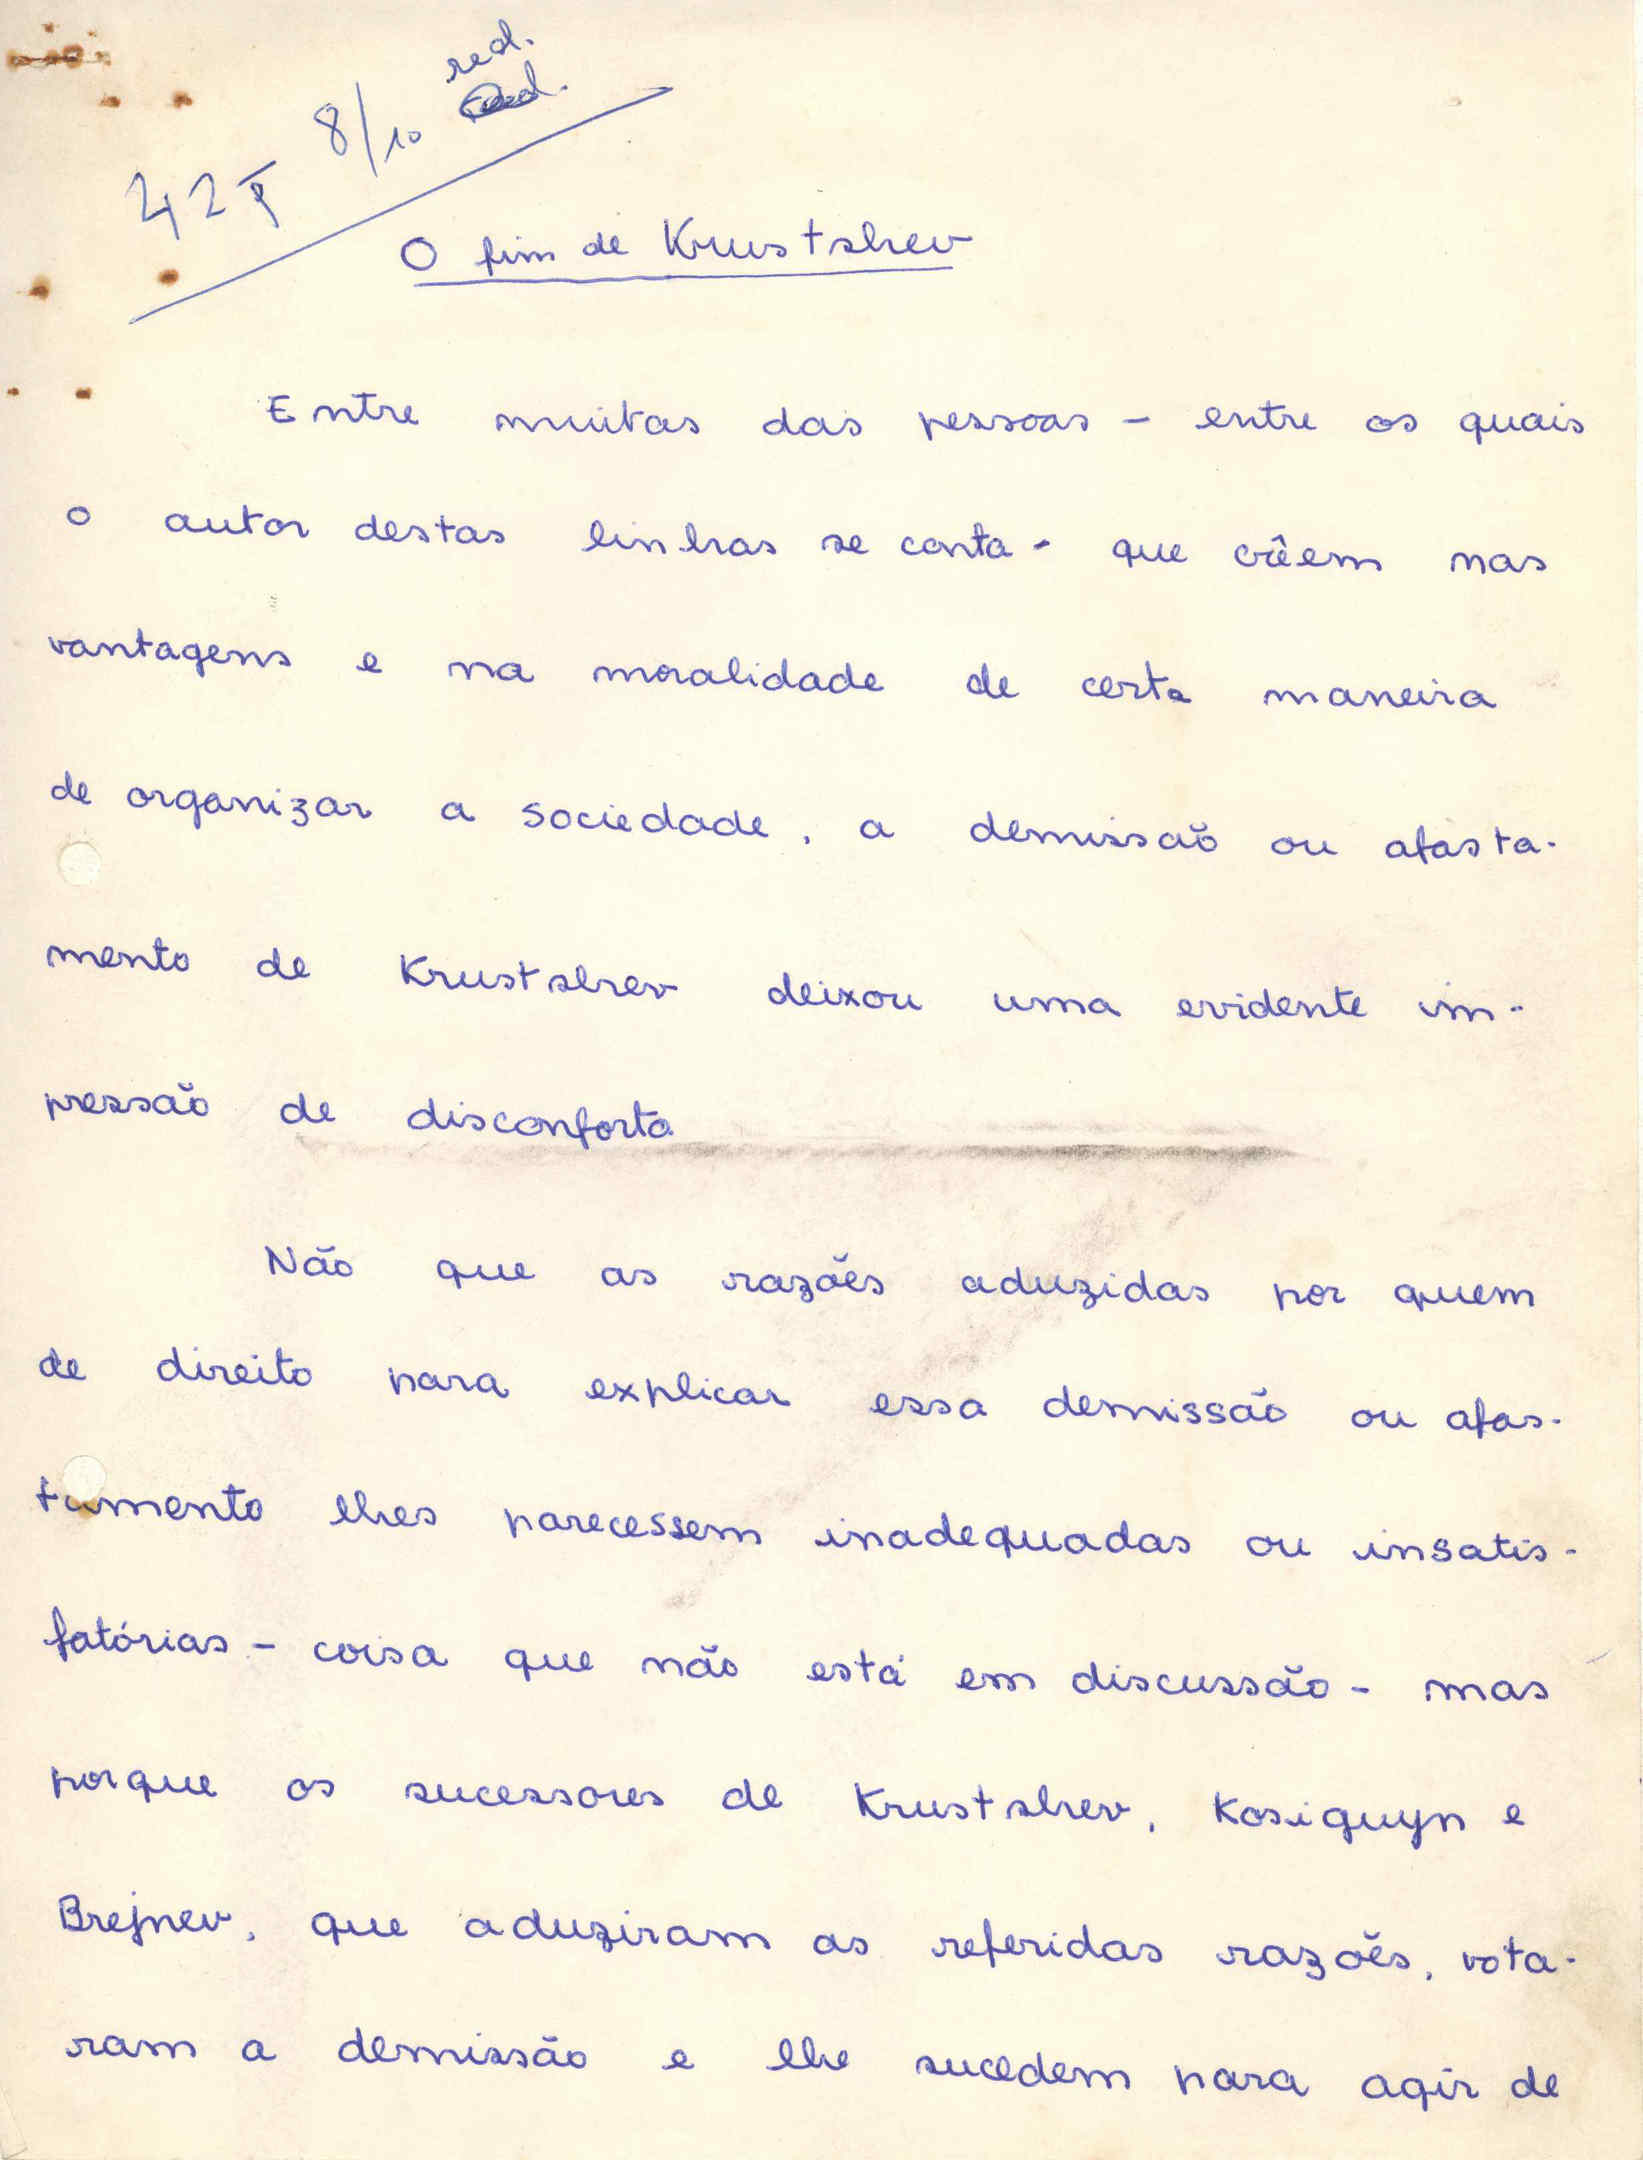 red.
8/10
42
O fim de Krustshev
Entre muitas das pessoas - entre os quais
o autor destas linhas se conta - que crêem nas
vantagens e na moralidade de certa maneira
de organizar a sociedade, a demissão ou afasta-
mento de Krustshev deixou uma evidente im-
pressão de disconforto
Não que as razões aduzidas por quem
de direito para explicar essa demissão ou afas-
tamento lhes parecessem inadequadas ou insatis-
fatórias - coisa que não está em discussão - mas
porque os sucessores de Krustshev, Kosiguyn e
Brejnev, que aduziram as referidas razões, vota-
ram a demissão e lhe sucedem para agir de